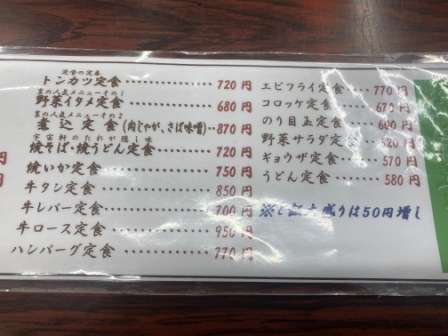 定食の定番
トンカツ定食 720円
裏の人気メニューその1
野菜イタメ定食 680円
裏の人気メニューその2
煮込定食(肉じゃが、さば味噌) 870円
焼そば・焼うどん定食 720円
焼いか定食 750円
牛タン定食 850円
牛レバー定食 700円
牛ロース定食 950円
ハンバーグ定食 770円
エビフライ定食 770円
コロッケ定食 670円
のり目玉定食 600円
野菜サラダ定食 620円
ギョウザ定食 570円
うどん定食 580円
大盛りは50円増し
円
円